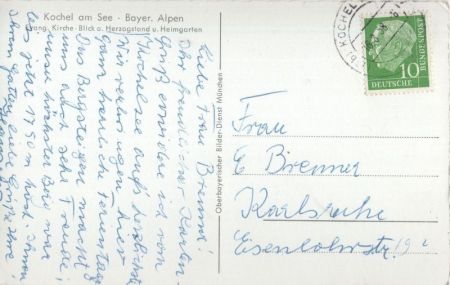 Kochel am See - Bayer. Alpen
Evang. Kirche - Blick a. Herzogstand u. Heimgarten
Liebe Frau Brenner!
Ihr freundlicher Karten-
Gruß erwidere ich vom
Kochelsee aufs herzlichste
Wir verbringen hier
ganz herrliche Ferientage
Das Bergsteigen macht
uns auch sehr Freude,
unser höchster Berg war
bis jetzt 1790 m hoch. Ihnen
Ihrem Gatten liebe Grüße Ihre
Oberbayerischer Bilder-Dienst München
KOCHEL
10
DEUTSCHE
BUNDESPOST
Frau
E Brenner
Karlsruhe
Eisenlohrstr. 19